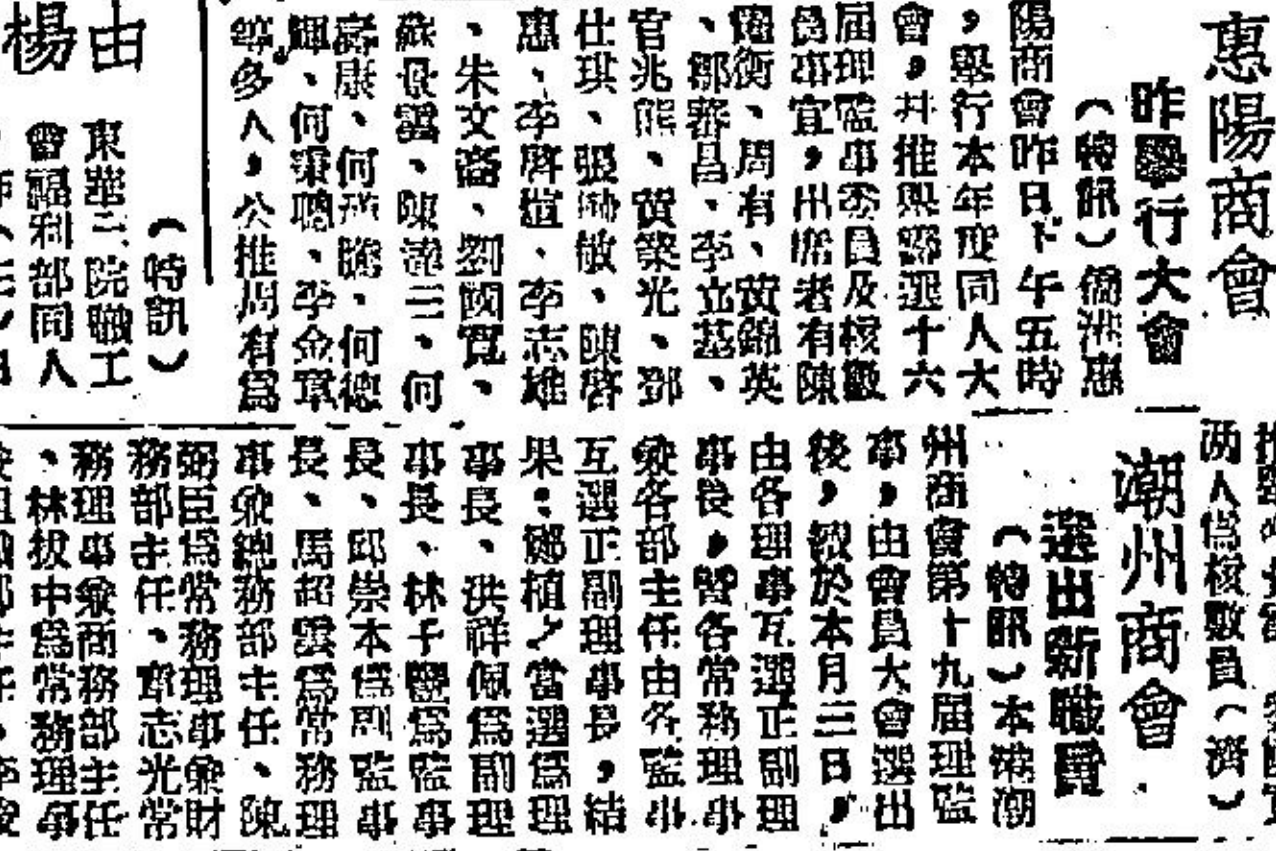 惠陽商會
昨舉行大會
（特訊）僑港惠
陽商會昨日下午五時
，舉行本年度同人大
會，并推舉第十六
屆理監事委員及核數
員事宜，出席者有陳
衡、周有、黃錦英
、鄒蕃昌、李立基、
官兆熊、黃榮光、鄧
仕琪、張敏、陳啓
惠、李啓、李志雄
、朱文、劉國寬、
蘇雲、陳三、何
壽康、何、何德
輝、何秉聰、李金章
等多人，公推周有爲
兩人爲核數員（濟）
潮州商會
選出新職員
（特訊）本港潮
州商會第十九屆理監
事，由會員大會選出
後，經於本月三日，
由各理事互選正副理
事長，暨各常務理事
兼各部主任由各監事
互選正副理事長，結
果：鄭植之當選爲理
事長、洪祥佩爲副理
事長、林子豐爲監事
長、邱崇本爲副監事
長、馬超雲爲常務理
事兼總務部主任、陳
弼臣爲常務理事兼財
務部主任、章志光常
務理事兼商務部主任
、林拔中爲常務理事
由楊
（特訊）
東華三院職工
會福利部同人